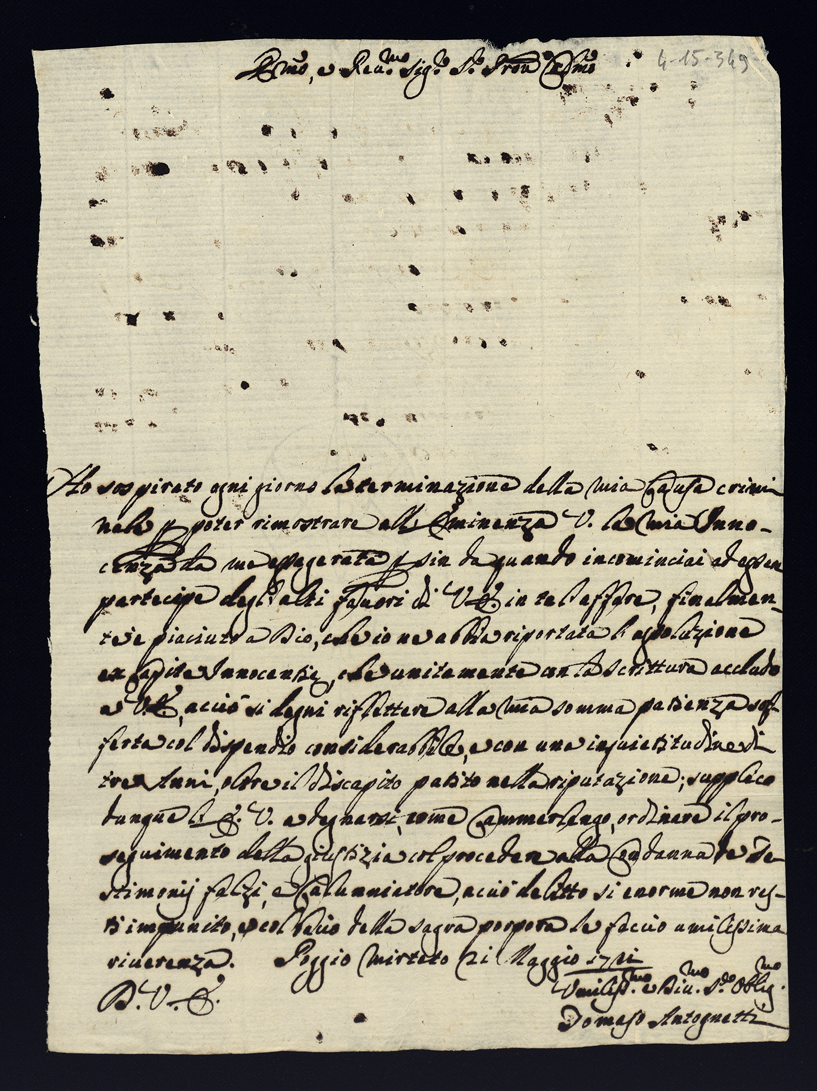 Em.mo, e Reu.mo Sig.r S.r Pron Col.mo
4-15-349
Ho sospirato ogni giorno la terminazione della mia Causa crimi-
nale p poter rimostrare all Eminenza V. la mia Inno-
cenza da me esagerata p sin da quando incominciai ad essere
partecipe degl'alti fauori di V.E. in tal affare, finalmen-
te è piaciuto a Dio, che io ne abbia riportata l'assoluzione
ex capite Innocentiæ, che unitamente con la scrittura accludo
a V.E., acciò si degni riflettere alla mia somma patienza sof-
ferta col dispendio considerabbile, e con una inquietitudine di
tre Anni, oltre il discapito patito nella riputazione; supplico
dunque l'E. V. a degnarsi, come Cammerlengo, ordinare il pro-
seguimento della giustizia col procedere alla Condanna de Te-
stimonij falzi, e Calunniatore, acciò delitto si enorme non res-
ti impunito, e col bacio della sagra porpora le faccio umilissima
riuerenza. Poggio Mirteto 21 Maggio 1711
D. V. E.
Umiliss.mo e Diu.mo S.re Oblig.mo
Tomaso Antognetti